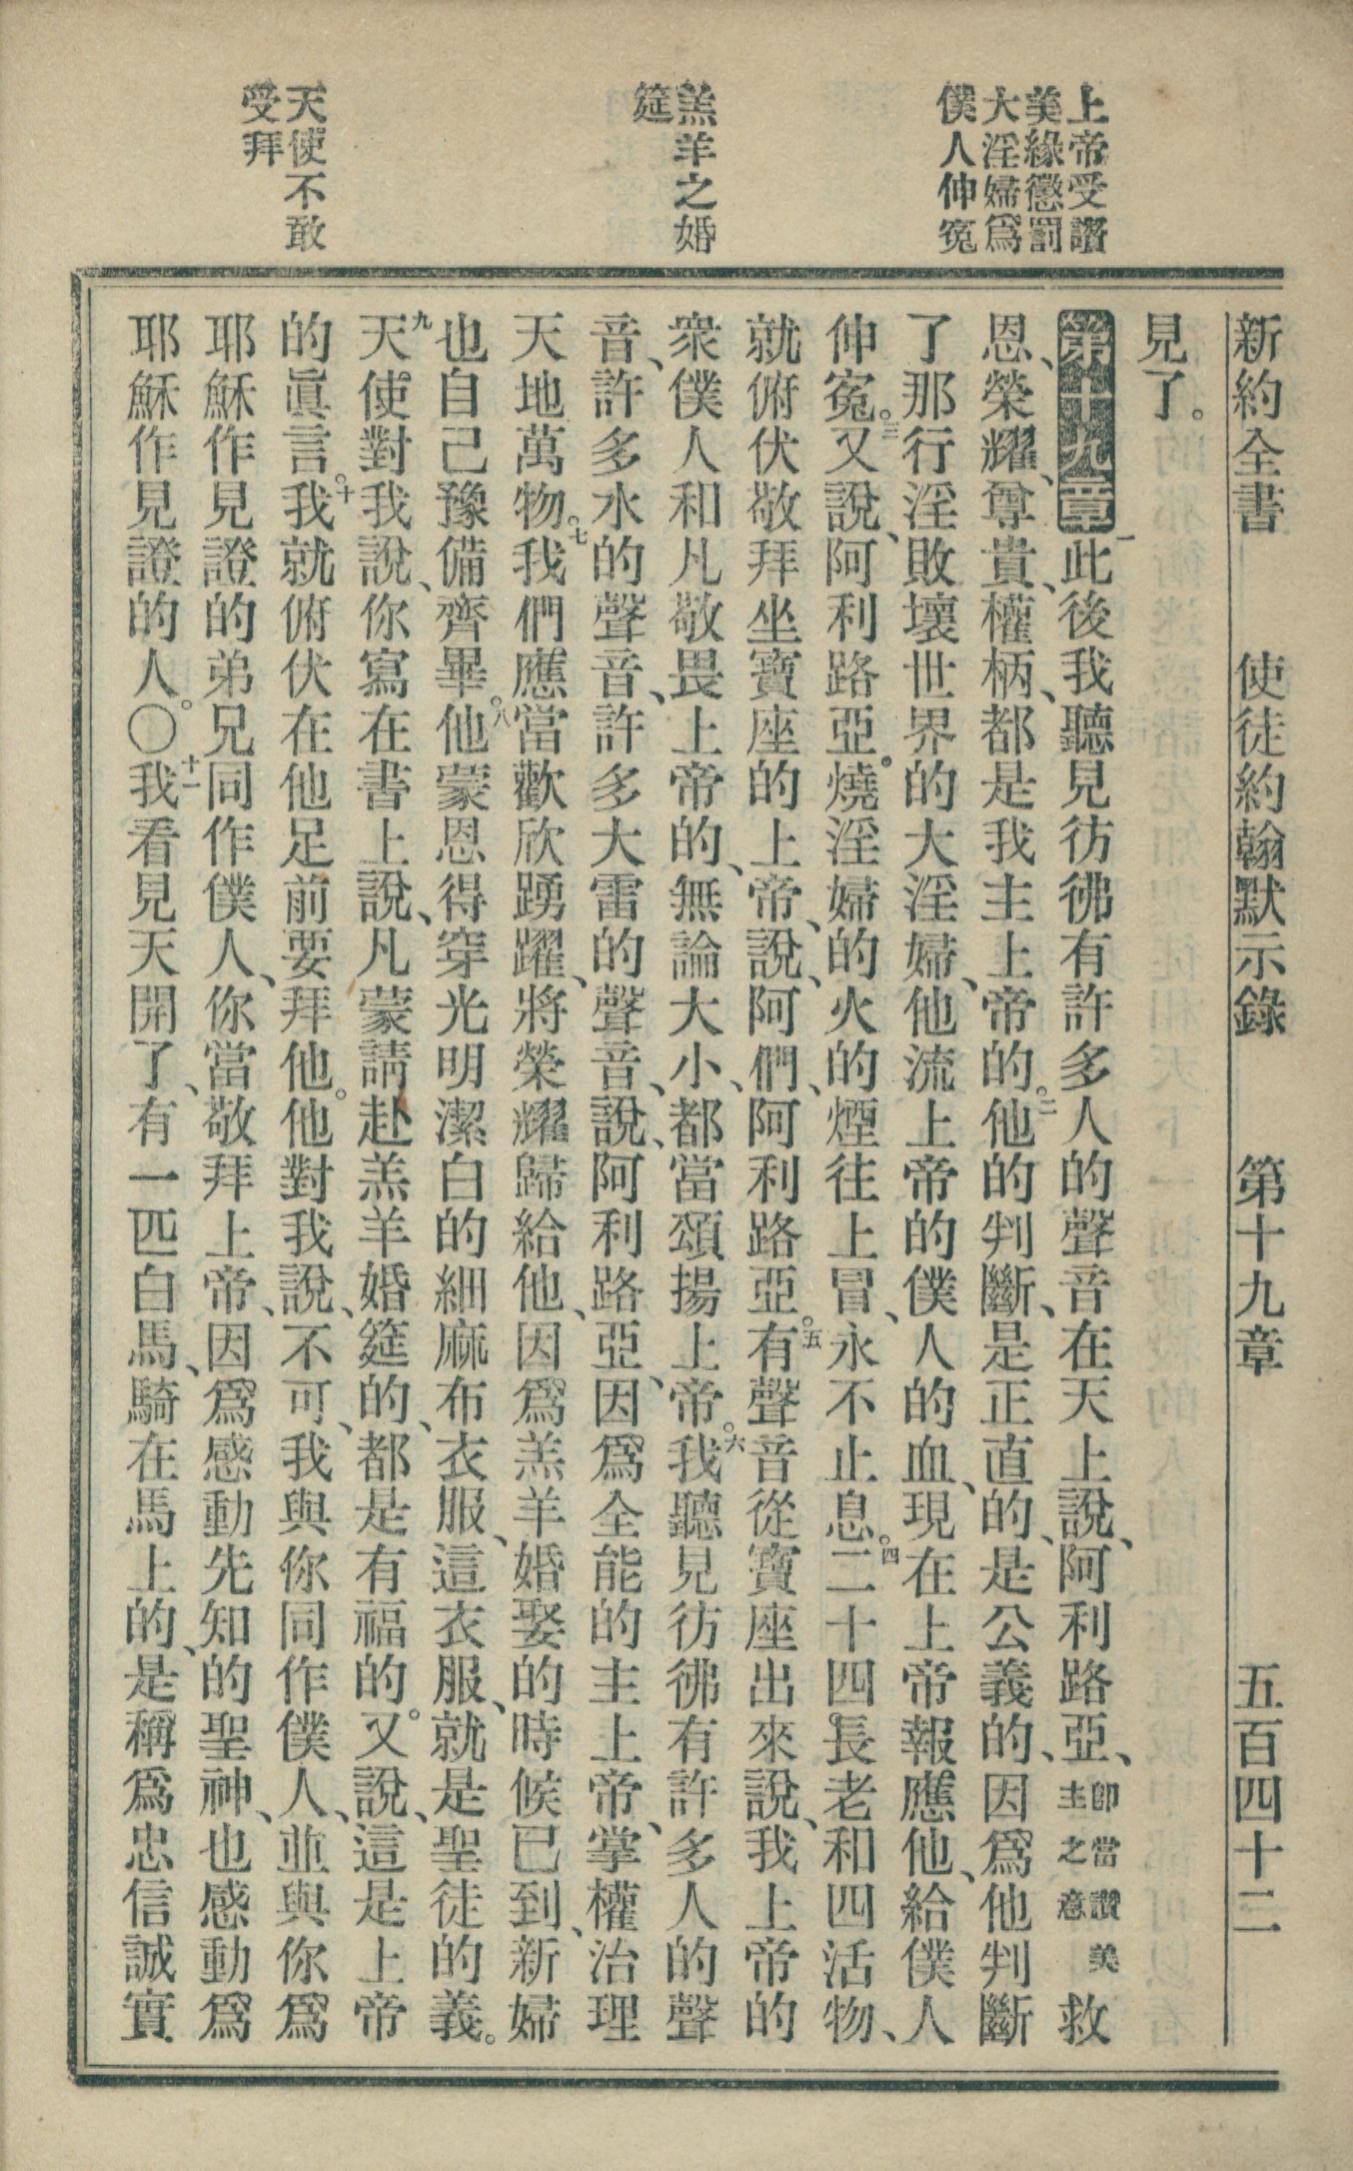 新約全書 使徒約翰默示錄 第十九章 五百四十二
上帝受讚
美緣懲罰
大淫婦爲
僕人伸冤
羔羊之婚
筵
天使不敢
受拜
見了。
第十九章 一此後我聽見彷彿有許多人的聲音在天上說、阿利路亞、卽當讚美主之意救
恩、榮耀、尊貴、權柄、都是我主上帝的。二他的判斷、是正直的、是公義的、因爲他判斷
了那行淫敗壞世界的大淫婦、他流上帝的僕人的血、現在上帝報應他、給僕人
伸冤。三又說、阿利路亞。燒淫婦的火的煙往上冒、永不止息。四二十四長老和四活物、
就俯伏敬拜坐寶座的上帝、說、阿們、阿利路亞。五有聲音從寶座出來說、我上帝的
衆僕人和凡敬畏上帝的、無論大小、都當頌揚上帝。六我聽見彷彿有許多人的聲
音、許多水的聲音、許多大雷的聲音、說、阿利路亞、因爲全能的主上帝、掌權治理
天地萬物。七我們應當歡欣踴躍、將榮耀歸給他、因爲羔羊婚娶的時候已到、新婦
也自己豫備齊畢。八他蒙恩得穿光明潔白的細麻布衣服、這衣服、就是聖徒的義。
九天使對我說、你寫在書上說、凡蒙請赴羔羊婚筵的、都是有福的。又說、這是上帝
的眞言。十我就俯伏在他足前要拜他。他對我說、不可、我與你同作僕人、並與你爲
耶穌作見證的弟兄同作僕人、你當敬拜上帝、因爲感動先知的聖神、也感動爲
耶穌作見證的人。〇十一我看見天開了、有一匹白馬、騎在馬上的、是稱爲忠信誠實